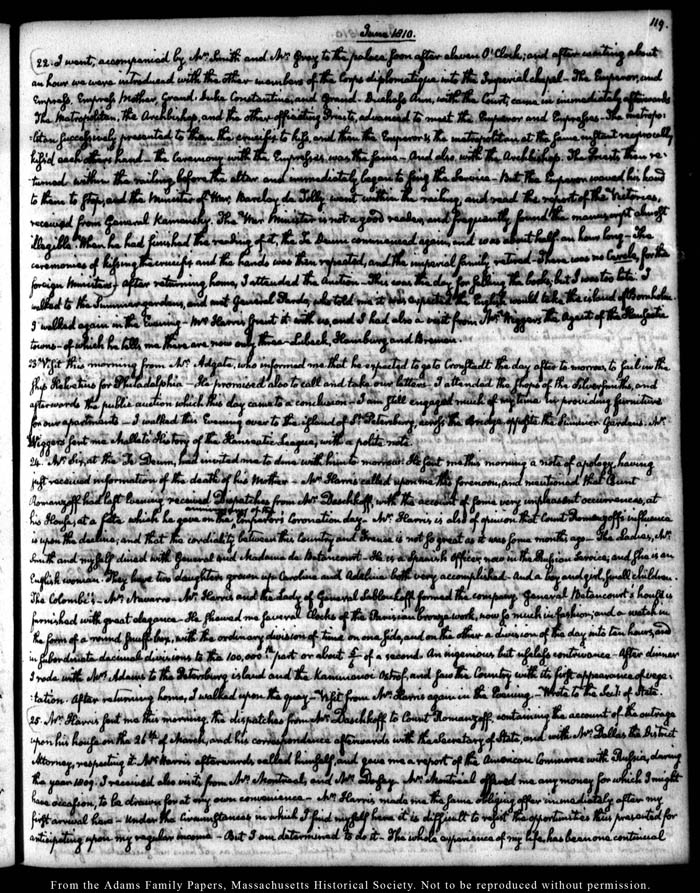 119.
June 1810.
22. I went, accompanied by Mr. Smith and Mr. Gray to the palace, soon after eleven O'Clock; and after waiting about
an hour we were introduced with the other members of the Corps diplomatique into the Imperial chapel — The Emperor, and
Empress, Empress Mother, Grand Duke Constantine, and Grand Duchess Ann, with the Court, came in immediately afterwards
The Metropolitan, the Archbishop, and the other officiating Priests, advanced to meet the Emperor and Empresses — The metropo-
litan successively presented to them the crucifix to kiss, and then the Emperor & the metropolitan at the same instant reciprocally
kiss'd each others hand — the Ceremony with the Empresses, was the same — And also with the Archbishop. The Priests then re-
turned within the railing, before the altar and immediately began to sing the Service — But the Emperor waved his hand
to them to stop, and the Minister of War, Barclay de Tolly went within the railing, and read the report of the Victories,
received from General Kamensky. The War Minister is not a good reader, and frequently found the manuscript almost
illegible. When he had finished the reading of it, the Te Deum commenced again, and was about half an hour long — The
ceremonies of kissing the crucifix and the hands was then repeated, and the imperial family retired — There was no Cercle, for the
foreign Ministers; after returning home, I attended the Auction — This was the day for selling the books, but I was too late. I
walked to the Summer gardens, and met General Pardo, who told me it was expected the English would take the island of Bornholm.
I walked again in the Evening — Mr. Harris spent it with us, and I had also a visit from Mr. Wiggers the Agent of the Hanseatic
towns — of which he tells me there are now only three — Lubeck, Hamburg and Bremen.
23. Visit this morning from Mr. Adgate, who informed me that he expected to go to Cronstadt the day after to-morrow, to sail in the
ship Helvetius for Philadelphia — He promised also to call and take our letters — I attended the shops of the Silversmiths, and
afterwards the public auction which this day came to a conclusion — I am still engaged much of my time in providing furniture
for our apartments — I walked this Evening over to the island of St. Petersburg, across the Bridge opposite the Summer Gardens. Mr.
Wiggers sent me Mallet's History of the Hanseatic league, with a polite note.
24. Mr. Six, at the Te Deum, had invited me to dine with him to-morrow. He sent me this morning a note of apology, having
just received information of the death of his Mother — Mr. Harris called upon me this forenoon, and mentioned that Count
Romanzoff had last Evening received Dispatches from Mr. Daschkoff, with the account of some very unpleasant occurrences, at
his House, at a fête which he gave on the anniversary of the Emperor's Coronation day — Mr. Harris is also of opinion that Count Romanzoff's influence
is upon the decline; and that the cordiality between this Country and France is not so great as it was some months ago — The Ladies, Mr.
Smith and myself dined with General and Madame de Betancourt. He is a Spanish Officer now in the Russian Service; and she is an
English woman — They have two daughters grown up Caroline and Adeline both very accomplished — And a boy and girl, small children.
The Colombi's — Mr. Navarro — Mr. Harris and the Lady of General Sablonkoff formed the company. General Betancourt's house is
furnished with great elegance — He shewed me several Clocks of the Parisian bronze work, now so much in fashion; and a watch in
the form of a round snuff-box, with the ordinary division of time on one side, and on the other a division of the day into ten hours, and
in subordinate decimal divisions to the 100,000th part or about of a second. An ingenious but useless contrivance — After dinner
I rode with Mrs. Adams to the Petersburg island and the Kammenoi Ostrof, and saw the Country with its first appearance of vege-
tation — After returning home, I walked upon the quay — Visit from Mr. Harris again in the Evening — Wrote to the Secy. of State.
25. Mr. Harris sent me this morning, the dispatches from Mr. Daschkoff to Count Romanzoff, containing the account of the outrage
upon his house on the 26th of March, and his correspondence afterwards with the Secretary of State, and with Mr. Dallas the District
Attorney, respecting it. Mr. Harris afterwards called himself, and gave me a report of the American Commerce with Russia, during
the year 1809. I received also visits from Mr. Montreal, and Mr. Montreal offered me any money for which I might
have occasion, to be drawn for at my own convenience — Mr. Harris made me the same obliging offer immediately after my
first arrival here — Under the Circumstances in which I find myself here it is difficult to resist the opportunities thus presented for
anticipating upon my regular income — But I am determined to do it — The whole experience of my life, has been one continual
From the Adams Family Papers, Massachusetts Historical Society. Not to be reproduced without permission.